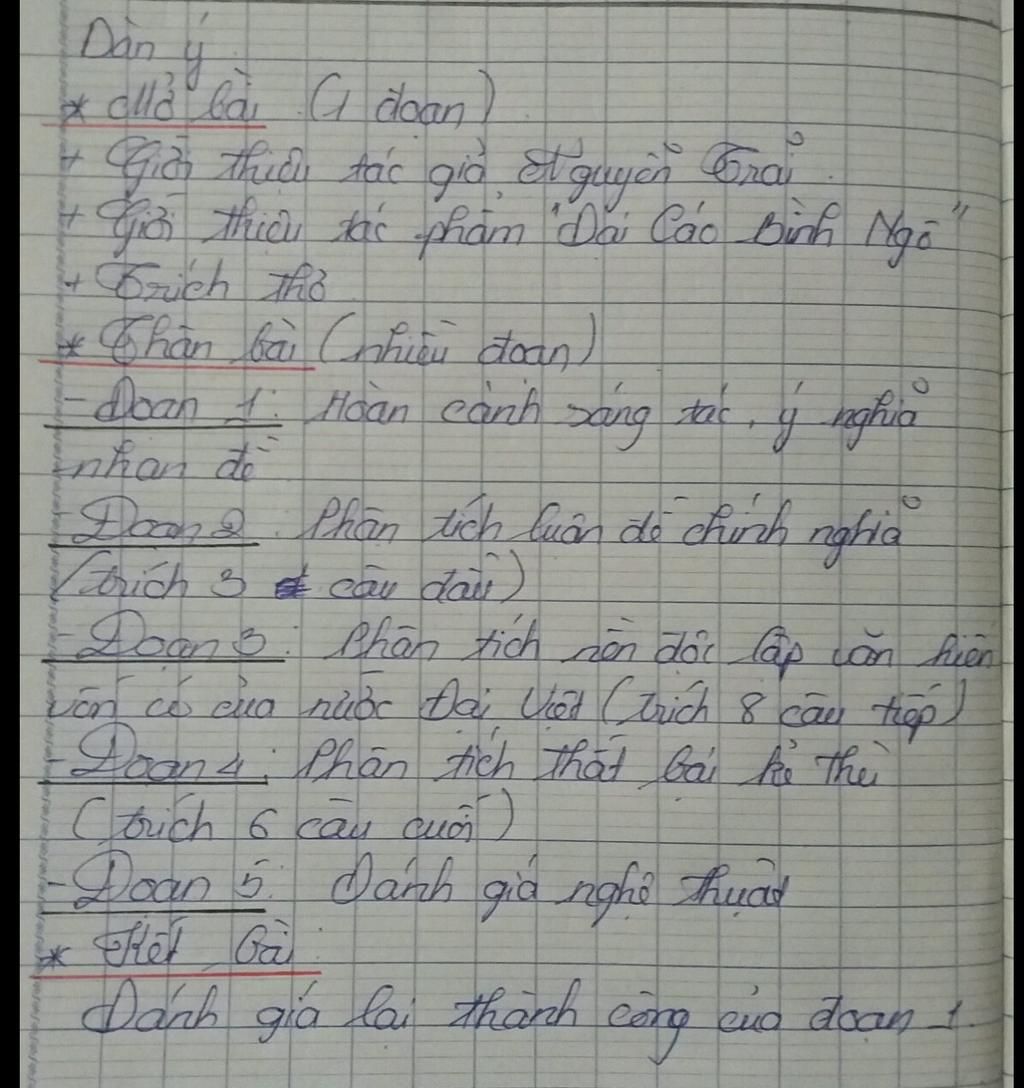 Dàn ý
* Mở bài (1 đoạn)
+ Giới thiệu tác giả Nguyễn Trãi.
+ Giới thiệu tác phẩm "Đại Cáo Bình Ngô"
+ Trích thơ
* Thân bài (nhiều đoạn)
- Đoạn 1: Hoàn cảnh sáng tác, ý nghĩa
nhan đề
- Đoạn 2: Phân tích luận đề chính nghĩa
(trích 3 câu đầu)
- Đoạn 3: Phân tích nền độc lập văn hiến
vốn có của nước Đại Việt (trích 8 câu tiếp)
- Đoạn 4: Phân tích thất bại kẻ thù
(trích 6 câu cuối)
- Đoạn 5: Đánh giá nghệ thuật
* Kết bài:
Đánh giá lại thành công của đoạn 1.